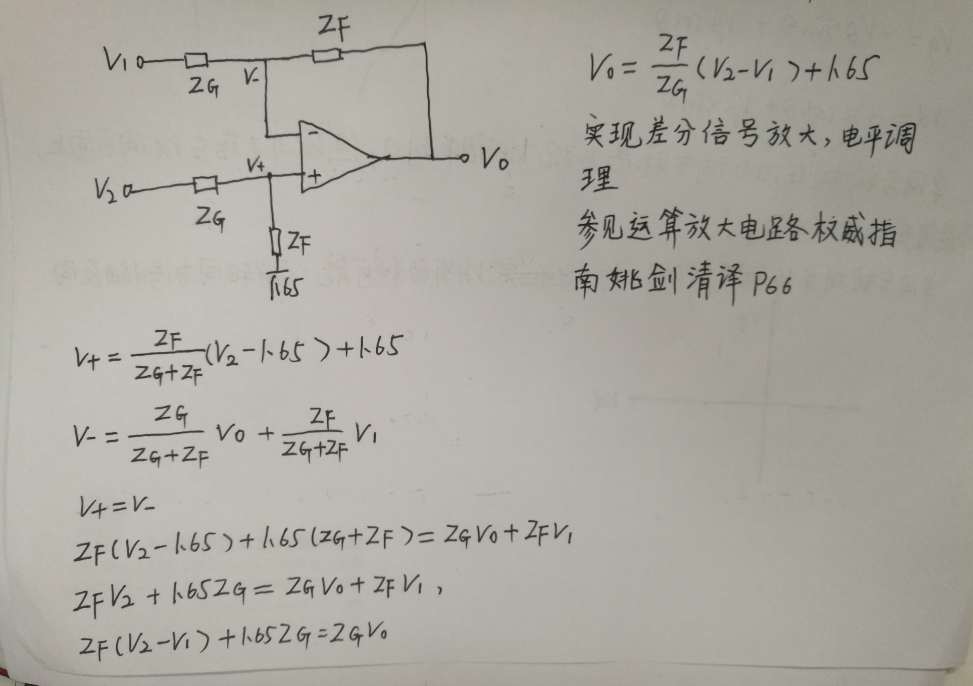 ZF
V1
ZG
V-
-
V0
V2
V+
+
ZG
ZF
1.65
V0 = ZF/ZG (V2-V1)+1.65
实现差分信号放大，电平调
理
参见运算放大电路权威指
南姚剑清译 P66
V+ = ZF/(ZG+ZF) (V2-1.65)+1.65
V- = ZG/(ZG+ZF) V0 + ZF/(ZG+ZF) V1
V+=V-
ZF(V2-1.65)+1.65(ZG+ZF)=ZGV0+ZFV1
ZFV2+1.65ZG=ZGV0+ZFV1,
ZF(V2-V1)+1.65ZG=ZGV0